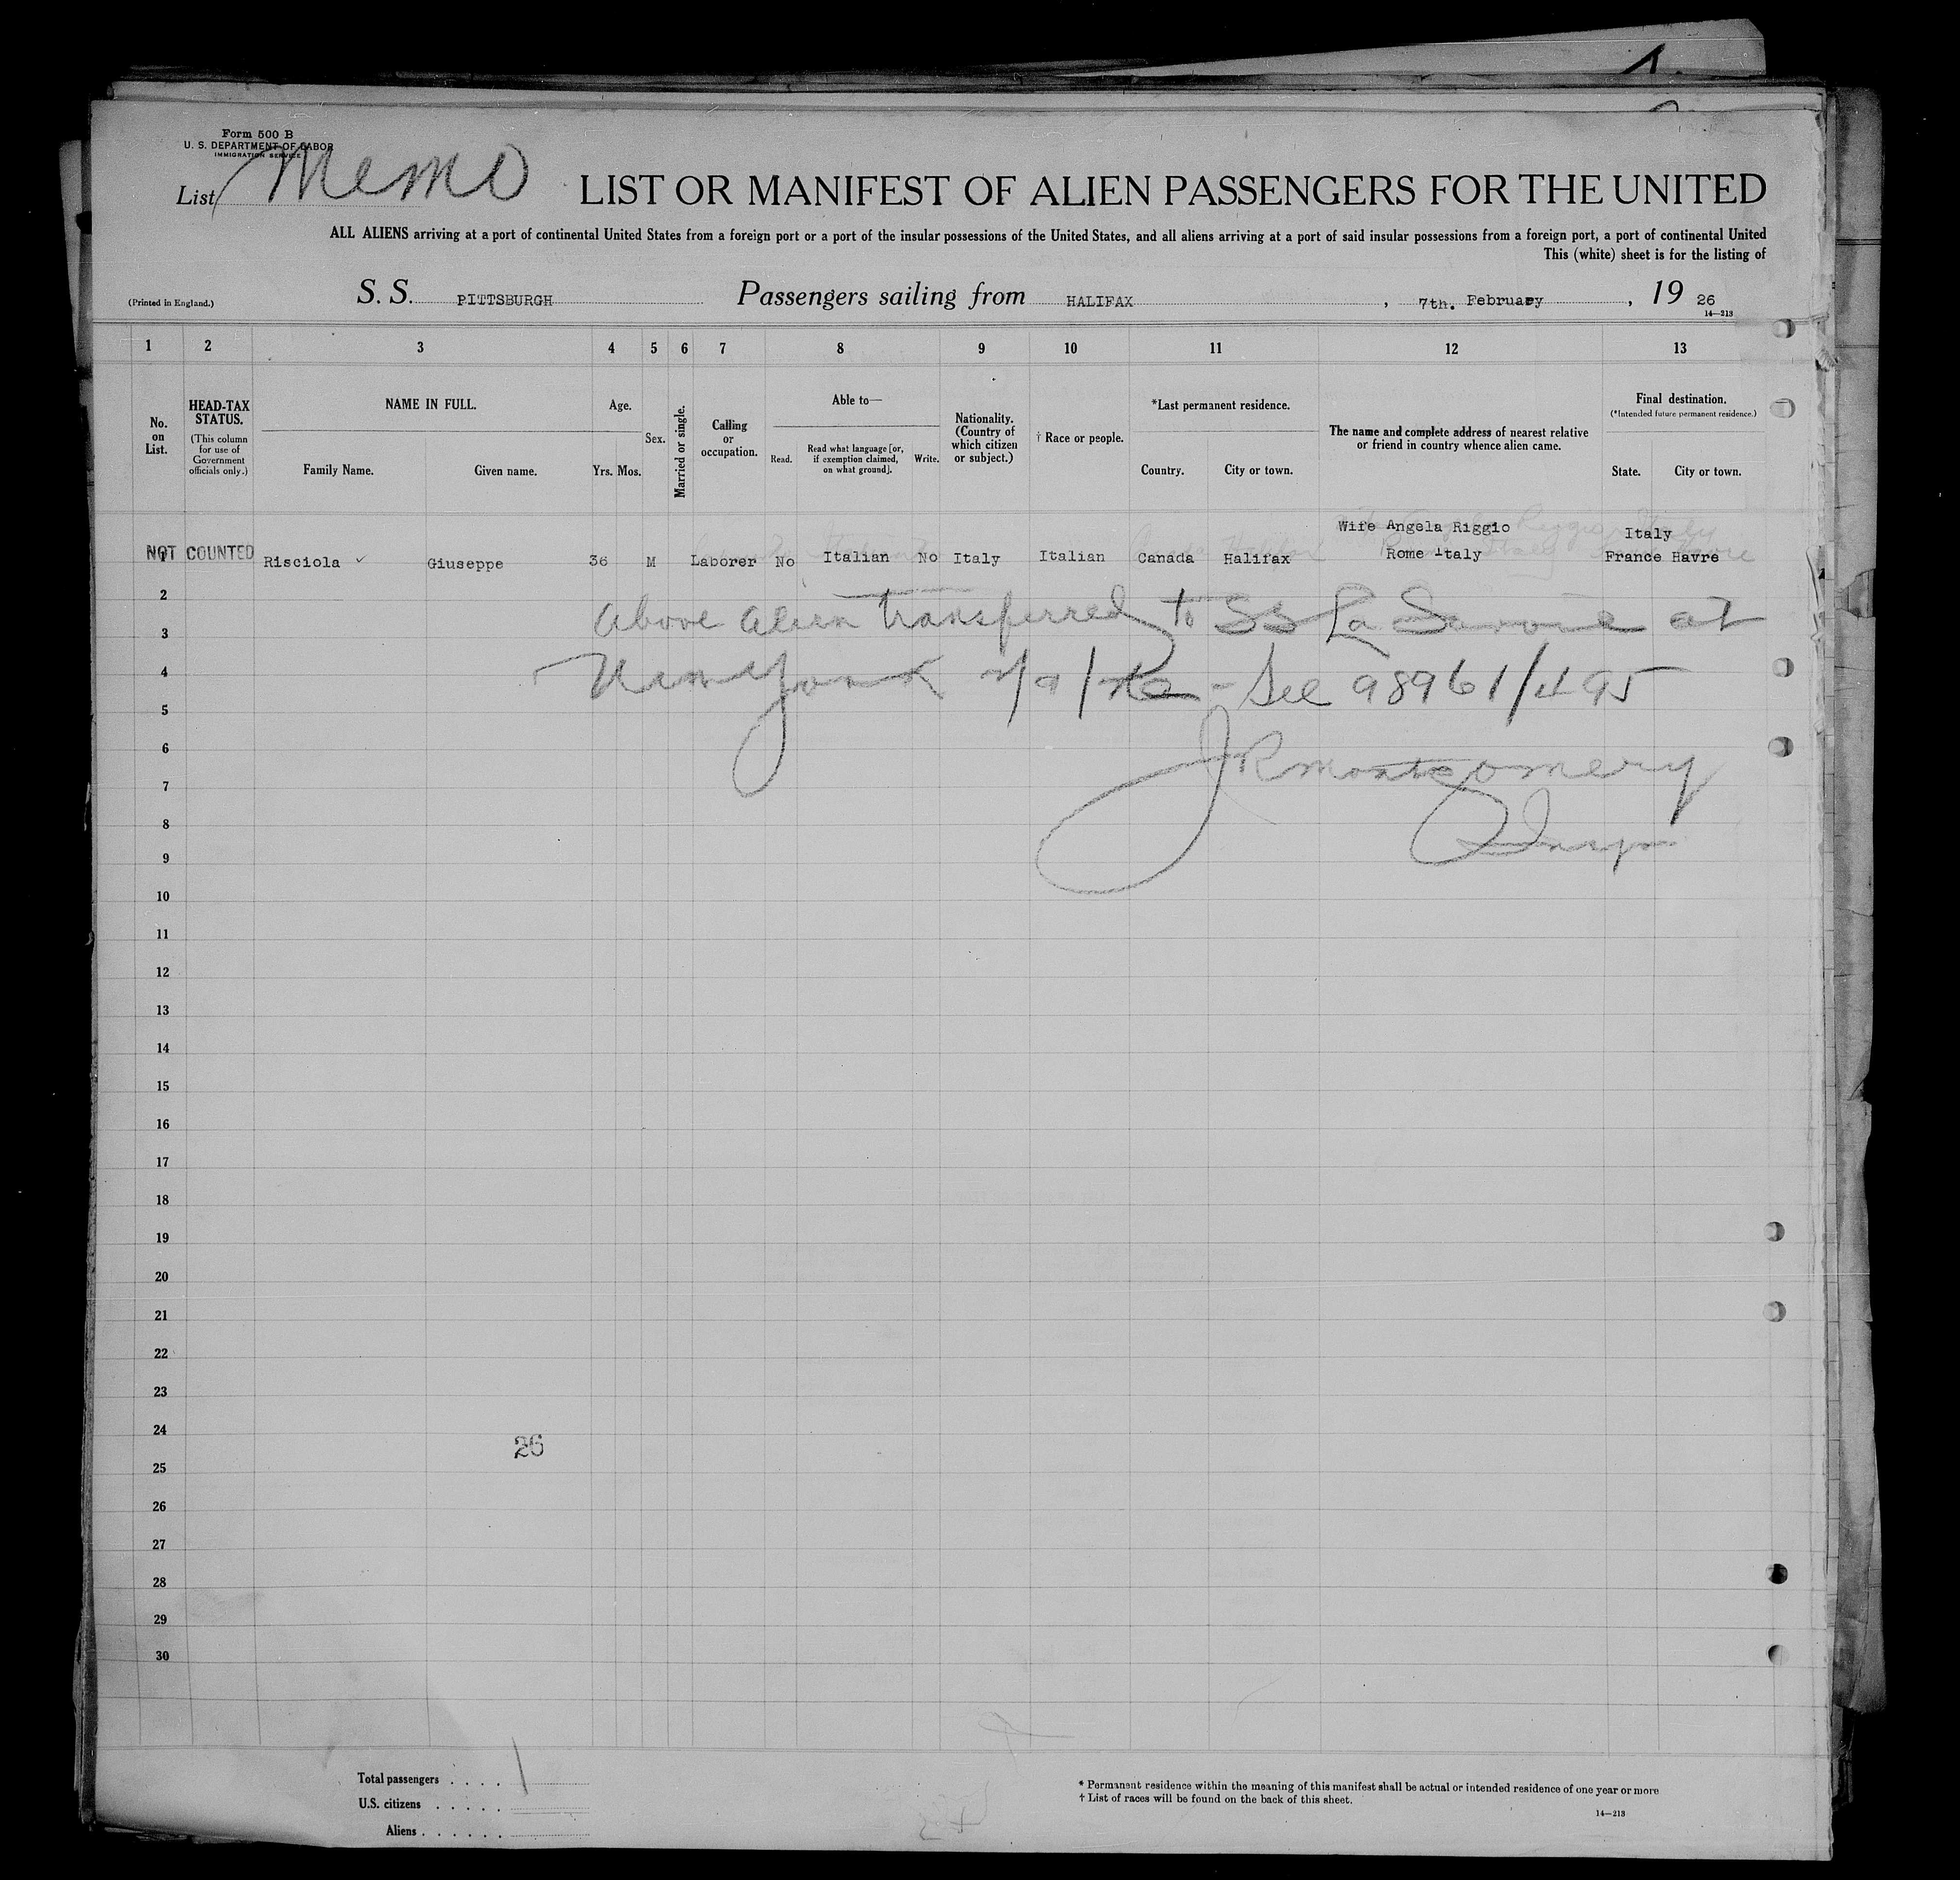 Form 500 B
U. S. DEPARTMENT OF LABOR
IMMIGRATION SERVICE
List Memo
LIST OR MANIFEST OF ALIEN PASSENGERS FOR THE UNITED
ALL ALIENS arriving at a port of continental United States from a foreign port or a port of the insular possessions of the United States, and all aliens arriving at a port of said insular possessions from a foreign port, a port of continental United
This (white) sheet is for the listing of
(Printed in England.)
S. S. PITTSBURGH Passengers sailing from HALIFAX , 7th. February , 19 26
14—213
1 2 3 4 5 6 7 8 9 10 11 12 13
No. on List.
HEAD-TAX STATUS.
(This column for use of Government officials only.)
NAME IN FULL.
Family Name. Given name.
Age.
Yrs. Mos.
Sex.
Married or single.
Calling or occupation.
Able to—
Read. Read what language [or, if exemption claimed, on what ground]. Write.
Nationality. (Country of which citizen or subject.)
† Race or people.
*Last permanent residence.
Country. City or town.
The name and complete address of nearest relative or friend in country whence alien came.
Final destination.
(*Intended future permanent residence.)
State. City or town.
Wife Angela Riggio Italy
1 NOT COUNTED Risciola ✓ Giuseppe 36 M Laborer No Italian No Italy Italian Canada Halifax Rome Italy France Havre
2
Above alien transferred to SS La Savoie at
3
4
New York - See 98961/495
5
6
JR Montgomery
7
8
9
10
11
12
13
14
15
16
17
18
19
20
21
22
23
24
26
25
26
27
28
29
30
Total passengers . . . . 1
U.S. citizens . . . . .
Aliens . . . . . .
* Permanent residence within the meaning of this manifest shall be actual or intended residence of one year or more
† List of races will be found on the back of this sheet.
14—213